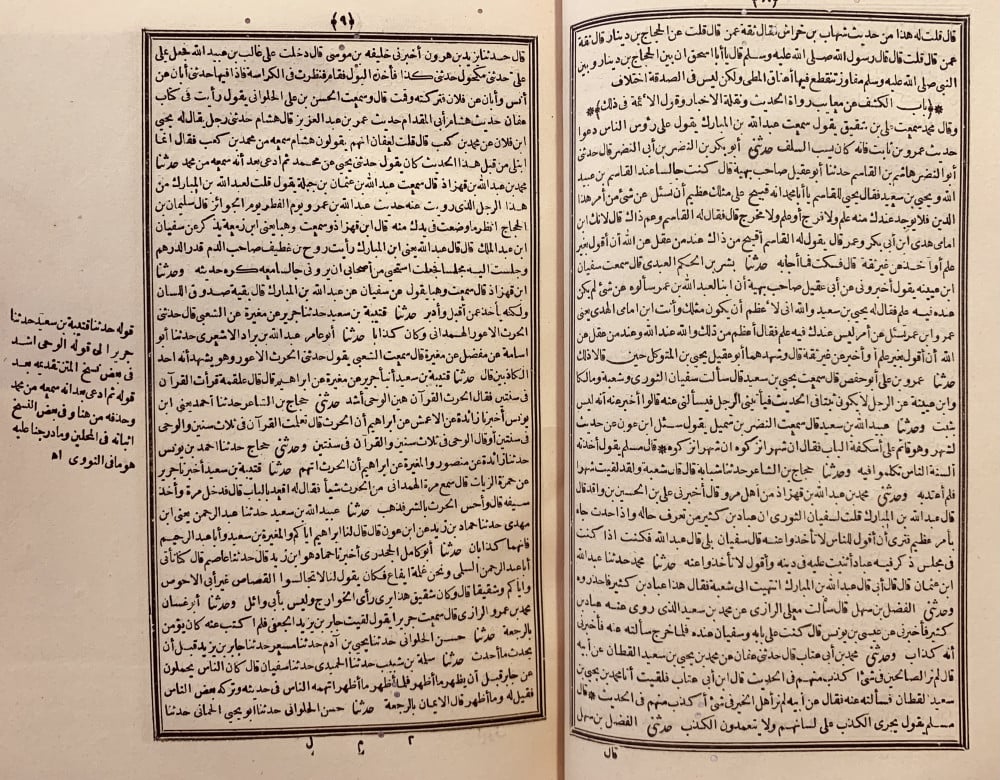 قال قلت له هذا من حديث شهاب بن خراش فقال ثقة عمن قال قلت عن الحجاج بن دينار قال ثقة
عمن قال قلت قال رسول الله صلى الله عليه وسلم قال يا أبا اسحق ان بين الحجاج بن دينار وبين
النبي صلى الله عليه وسلم مفاوز تنقطع فيها أعناق المطي ولكن ليس في الصدقة اختلاف
﴿باب الكشف عن معايب رواة الحديث ونقلة الاخبار وقول الأئمة في ذلك﴾
وقال محمد سمعت علي بن شقيق يقول سمعت عبد الله بن المبارك يقول على رؤس الناس دعوا
حديث عمرو بن ثابت فانه كان يسب السلف حدثني أبو بكر بن النضر بن أبي النضر قال حدثني
أبو النضر هاشم بن القاسم حدثنا أبو عقيل صاحب بهية قال كنت جالسا عند القاسم بن عبيد
الله ويحيى بن سعيد فقال يحيى للقاسم يا أبا محمد انه قبيح على مثلك عظيم أن تسئل عن شئ من أمر هذا
الدين فلا يوجد عندك منه علم ولا فرج أو علم ولا مخرج فقال له القاسم وعم ذاك قال لانك ابن
امامي هدى ابن أبي بكر وعمر قال يقول له القاسم أقبح من ذاك عند من عقل عن الله أن أقول بغير
علم أو آخذ عن غير ثقة قال فسكت فما أجابه حدثنا بشر بن الحكم العبدي قال سمعت سفيان
ابن عيينه يقول أخبروني عن أبي عقيل صاحب بهية أن ابنا لعبد الله بن عمر سألوه عن شئ لم يكن
عنده فيه علم فقال له يحيى بن سعيد والله اني لأعظم أن يكون مثلك وأنت ابن امامي الهدى يعني
عمر وابن عمر تسئل عن أمر ليس عندك فيه علم فقال أعظم من ذلك والله عند الله وعند من عقل عن
الله أن أقول بغير علم أو أخبر عن غير ثقة قال وشهدهما أبو عقيل يحيى بن المتوكل حين قالا ذلك
حدثنا عمرو بن علي أبو حفص قال سمعت يحيى بن سعيد قال سألت سفيان الثوري وشعبة ومالكا
وابن عيينة عن الرجل لا يكون ثبتا في الحديث فيأتيني الرجل فيسألني عنه قالوا أخبر عنه أنه ليس
بثبت وحدثنا عبيد الله بن سعيد قال سمعت النضر بن شميل يقول سئل ابن عون عن حديث
لشهر وهو قائم على أسكفة الباب فقال ان شهرا نزكوه ان شهرا نزكوه * قال مسلم يقول أخذته
ألسنة الناس تكلموا فيه وحدثنا حجاج بن الشاعر حدثنا شبابة قال قال شعبة ولقد لقيت شهرا
فلم أعتد به وحدثني محمد بن عبد الله بن قهزاذ من أهل مرو قال أخبرني علي بن الحسين بن واقد قال
قال عبد الله بن المبارك قلت لسفيان الثوري ان عباد بن كثير من تعرف حاله واذا حدث جاء
بأمر عظيم فترى أن أقول للناس لا تأخذوا عنه قال سفيان بلى قال عبد الله فكنت اذا كنت
في مجلس ذكر فيه عباد أثنيت عليه في دينه وأقول لا تأخذوا عنه حدثنا محمد حدثنا عبد الله
ابن عثمان قال قال أبي قال عبد الله بن المبارك انتهيت الى شعبة فقال هذا عباد بن كثير فاحذروه
وحدثني الفضل بن سهل قال سألت معلى الرازي عن محمد بن سعيد الذي روى عنه عباد بن
كثير فأخبرني عن عيسى بن يونس قال كنت على بابه وسفيان عنده فلما خرج سألته عنه فأخبرني
أنه كذاب وحدثني محمد بن أبي عتاب قال حدثني عفان عن محمد بن يحيى بن سعيد القطان عن أبيه
قال لم تر الصالحين في شئ أكذب منهم في الحديث قال ابن أبي عتاب فلقيت أنا محمد بن يحيى بن
سعيد القطان فسألته عنه فقال عن أبيه لم تر أهل الخير في شئ أكذب منهم في الحديث * قال
مسلم يقول يجري الكذب على لسانهم ولا يتعمدون الكذب حدثني الفضل بن سهل
قال
﴿٩﴾
قال حدثنا يزيد بن هرون أخبرني خليفة بن موسى قال دخلت على غالب بن عبيد الله فجعل يملي
على حدثني مكحول حدثني مكحول كذا فأخذه البول فقام فنظرت في الكراسة فاذا فيها حدثني أبان عن
أنس وأبان عن فلان فتركته وقت قال وسمعت الحسن بن علي الحلواني يقول رأيت في كتاب
عفان حديث هشام أبي المقدام حديث عمر بن عبد العزيز قال هشام حدثني رجل يقال له يحيى
ابن فلان عن محمد بن كعب قال قلت لعفان انهم يقولون هشام سمعه من محمد بن كعب فقال انما
ابتلى من قبل هذا الحديث كان يقول حدثني يحيى عن محمد ثم ادعى بعد أنه سمعه من محمد حدثنا
محمد بن عبد الله بن قهزاذ قال سمعت عبد الله بن عثمان بن جبلة يقول قلت لعبد الله بن المبارك من
هذا الرجل الذي رويت عنه حديث عبد الله بن عمرو يوم الفطر يوم الجوائز قال سليمان بن
الحجاج انظر ما وضعت في يدك منه قال ابن قهزاذ وسمعت وهب بن زمعة يذكر عن سفيان
ابن عبد الملك قال قال عبد الله يعني ابن المبارك رأيت روح بن غطيف صاحب الدم قدر الدرهم
وجلست اليه مجلسا فجعلت أستحيي من أصحابي أن يروني جالسا معه كره حديثه وحدثنا
ابن قهزاذ قال سمعت وهبا يقول عن سفيان عن عبد الله بن المبارك قال بقية صدوق اللسان
ولكنه يأخذ عمن أقبل وأدبر حدثنا قتيبة بن سعيد حدثنا جرير عن مغيرة عن الشعبي قال حدثني
الحرث الاعور الهمداني وكان كذابا حدثنا أبو عامر عبد الله بن براد الاشعري حدثنا أبو
اسامة عن مفضل عن مغيرة قال سمعت الشعبي يقول حدثني الحرث الاعور وهو يشهد أنه أحد
الكاذبين قال حدثنا قتيبة بن سعيد أنبأ جرير عن مغيرة عن ابراهيم قال قال علقمة قرأت القرآن
في سنتين فقال الحرث القرآن هين الوحي أشد حدثني حجاج بن الشاعر حدثنا أحمد يعني ابن
يونس أخبرنا زائدة عن الاعمش عن ابراهيم أن الحرث قال تعلمت القرآن في ثلاث سنين والوحي
في سنتين أو قال الوحي في ثلاث سنين والقرآن في سنتين وحدثني حجاج حدثنا احمد بن يونس
حدثنا زائدة عن منصور والمغيرة عن ابراهيم أن الحرث اتهم حدثنا قتيبة بن سعيد أخبرنا جرير
عن حمزة الزيات قال سمع مرة الهمداني من الحرث شيأ فقال له اقعد بالباب قال فدخل مرة وأخذ
سيفه قال وأحس الحرث بالشر فذهب حدثنا عبيد الله بن سعيد حدثنا عبد الرحمن يعني ابن
مهدي حدثنا حماد بن زيد عن ابن عون قال قال لنا ابراهيم اياكم والمغيرة بن سعيد وأبا عبد الرحيم
فانهما كذابان حدثنا أبو كامل الجحدري أخبرنا حماد وهو ابن زيد قال حدثنا عاصم قال كنا نأتي
أبا عبد الرحمن السلمي ونحن غلمة ايفاع فكان يقول لنا لا تجالسوا القصاص غير أبي الاحوص
واياكم وشقيقا قال وكان شقيق هذا يرى رأي الخوارج وليس بأبي وائل وحدثنا أبو غسان
محمد بن عمرو الرازي قال سمعت جريرا يقول لقيت جابر بن يزيد الجعفي فلم اكتب عنه كان يؤمن
بالرجعة حدثنا حسن الحلواني حدثنا يحيى بن آدم حدثنا مسعر حدثنا جابر بن يزيد قبل أن
يحدث ما أحدث حدثنا سلمة بن شبيب حدثنا الحميدي حدثنا سفيان قال كان الناس يحملون
عن جابر قبل أن يظهر ما أظهر فلما أظهر ما أظهر اتهمه الناس في حديثه وتركه بعض الناس
فقيل له وما أظهر قال الايمان بالرجعة حدثنا حسن الحلواني حدثنا أبو يحيى الحماني حدثنا
قوله حدثنا قتيبة بن سعيد حدثنا
جرير الى قوله الوحي اشد
في بعض نسخ المتن تقديمه بعد
قوله ثم ادعى بعد انه سمعه من محمد
وحذفه من هنا وفي بعض النسخ
اثباته في المحلين وما درجنا عليه
هو ما في النووي اه